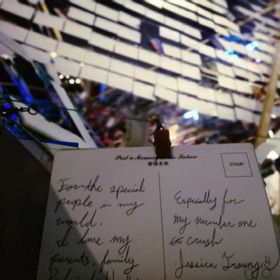 Post a Memory to the Future
STAMP
For the special
people in my
world.
I love my
parents, family
Especially for
my number one
crush
Jessica